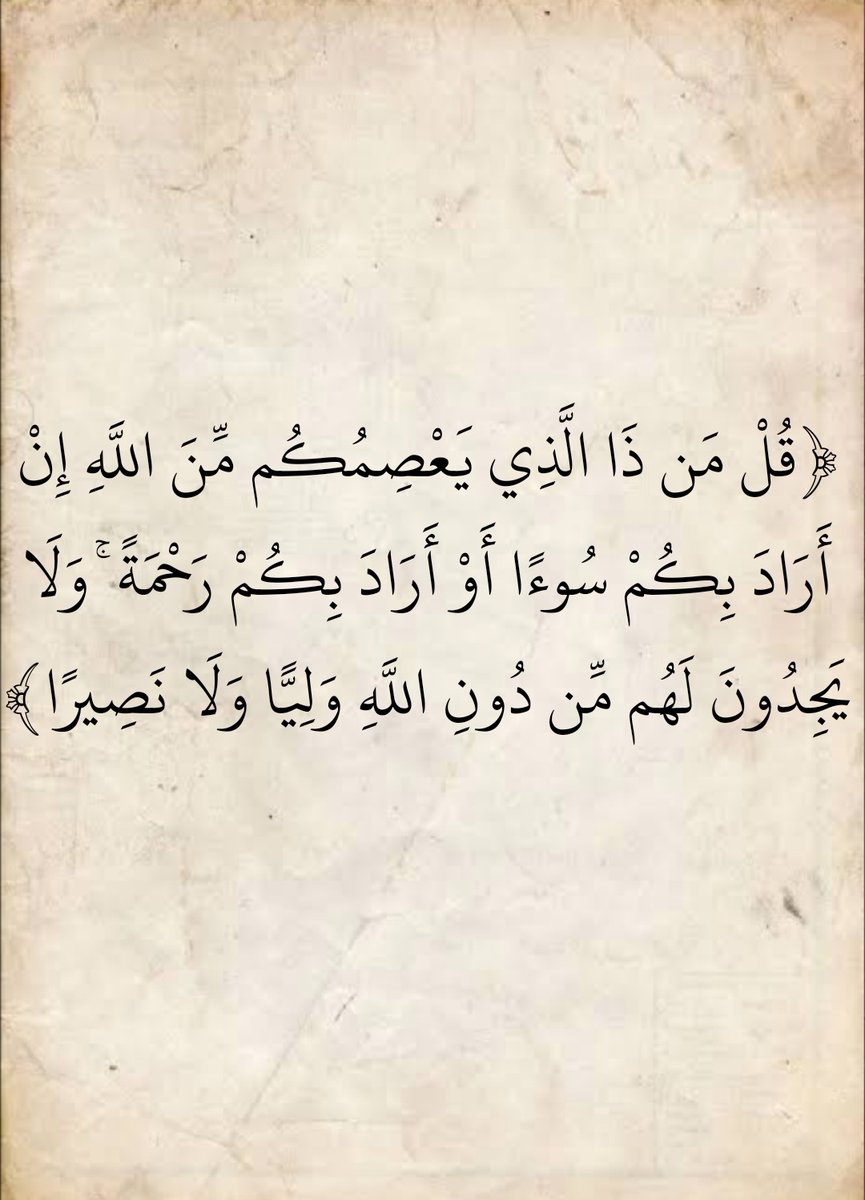 ﴿قُلْ مَن ذَا الَّذِي يَعْصِمُكُم مِّنَ اللَّهِ إِنْ
أَرَادَ بِكُمْ سُوءًا أَوْ أَرَادَ بِكُمْ رَحْمَةً ۚ وَلَا
يَجِدُونَ لَهُم مِّن دُونِ اللَّهِ وَلِيًّا وَلَا نَصِيرًا﴾